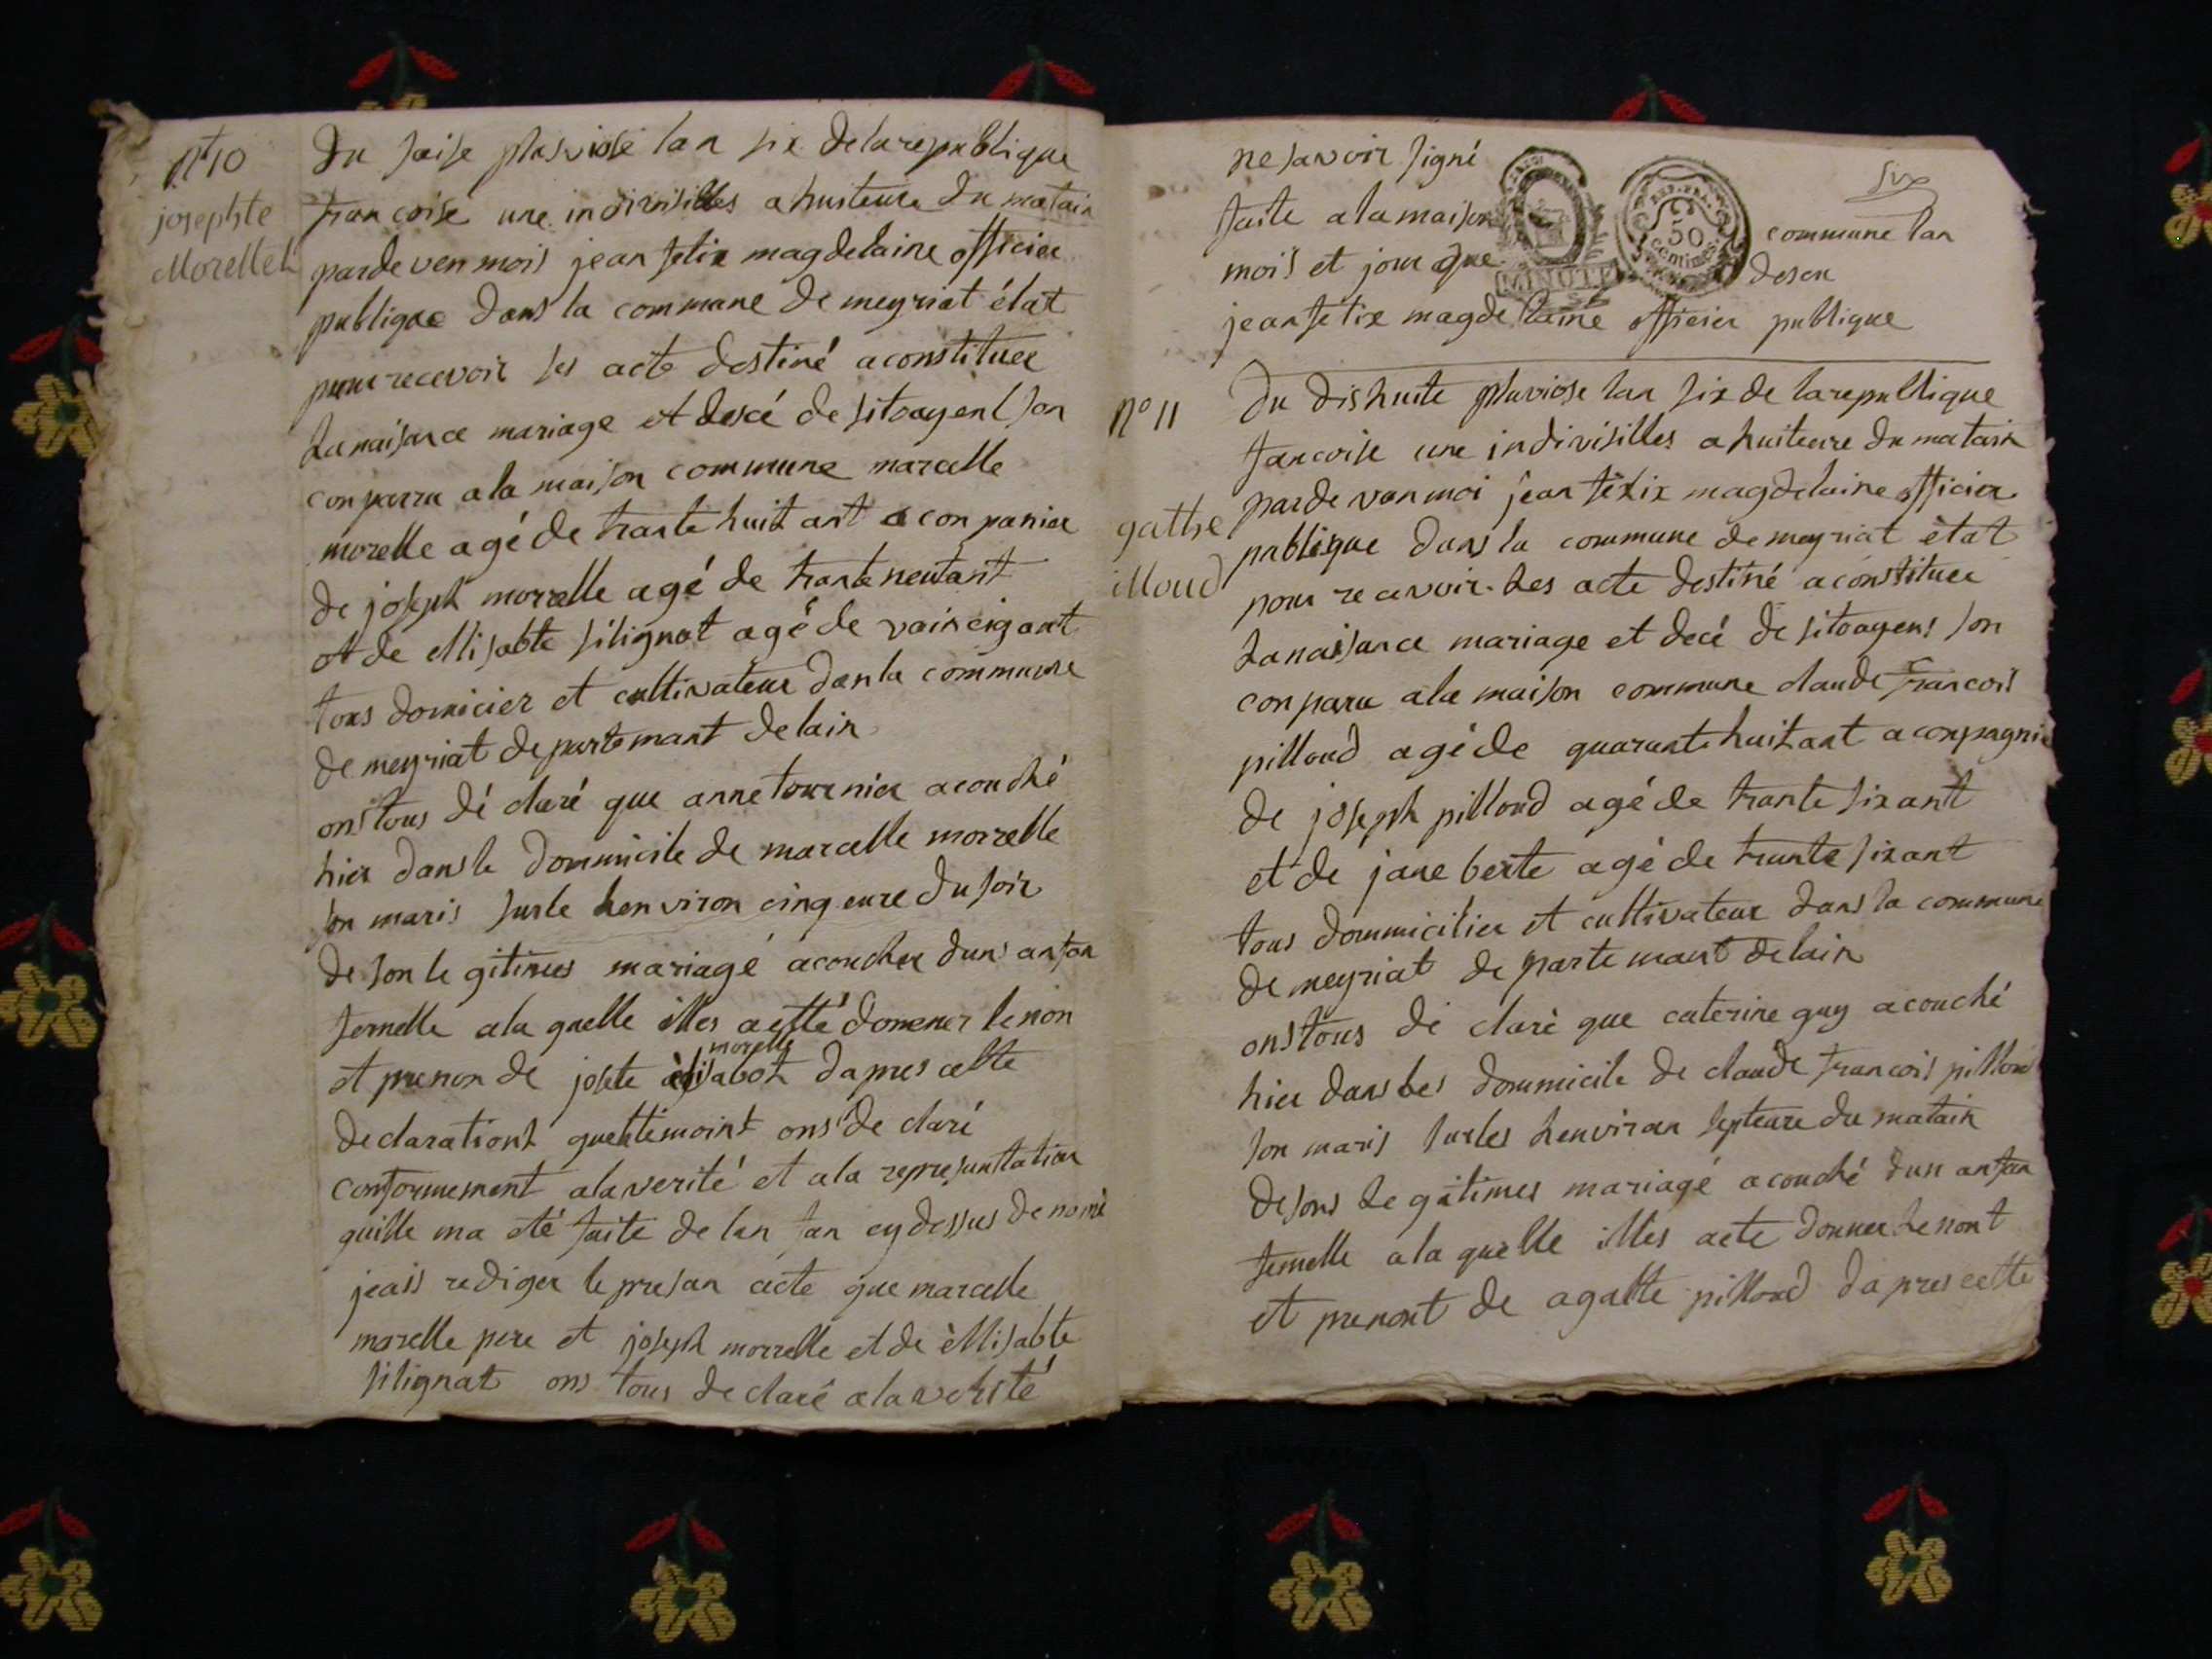 n° 10
josephte
Morellet
Du saise plusviose lan six delarepublique
francoise une indivisibles a huiteure du matain
pardevenmois jean felix magdelaine officier
publique dans la commune de meyriat état
pour recevoir les acte destiné aconstituer
lanaisance mariage et descé de sitoayent son
conparru ala maison commune marcelle
morelle agé de trante huit ant aconpanier
de joseph morrelle agé de trante neufant
et de ellisabte silignat agé de vaincigant
tous domicier et cultivateur dan la commune
de meyriat departemant delain
onstous dé claré que anne tournier acouché
hier dans le dommicile de marcelle morrelle
son maris surle henviron cinq eure du soir
de son legitimes mariagé acoucher dun anfan
femelle ala quelle illes aetté donener lenon
morelle
et prenon de josete élisabot dapres cette
declarationt quettemoint ons declaré
conformement ala verité et ala represantation
quille ma eté faite de lan fan cy dessus denomé
jeais rediger le presan acte que marcelle
morelle pere et joseph morrelle et de éllisabte
silignat ons tous declaré ala verité
six
ne savoir signé
faite ala maison commune lan
mois et jour que desen
MINUTE
REP. FRA.
50
centimes
jean felix magdelaine officier publique
n° 11
gathe
illoud
Du dishuite pluviose lan six de larepublique
francoise une indivisilles a huiteure du matain
pardevanmoi jean félix magdelaine officier
publique dans la commune demeyriat état
pour recevoir les acte destiné aconstituer
lanaisance mariage et decé de sitoayens son
conparu ala maison commune claude francois
pilloud agé de quarante huit ant aconpagnie
de joseph pilloud agé de trante sixant
et de jane berte agé de trante sixant
tous dommicilier et cultivateur dans la commune
de meyriat de partemant delain
onstous dé claré que caterine guy acouché
hier dans les dommicile de claude francois pilloud
son maris surles henviron septeure du matain
desons legitimes mariagé acouché dun anfan
femelle ala quelle illes aete donner lenont
et prenont de agatte pilloud dapres cette